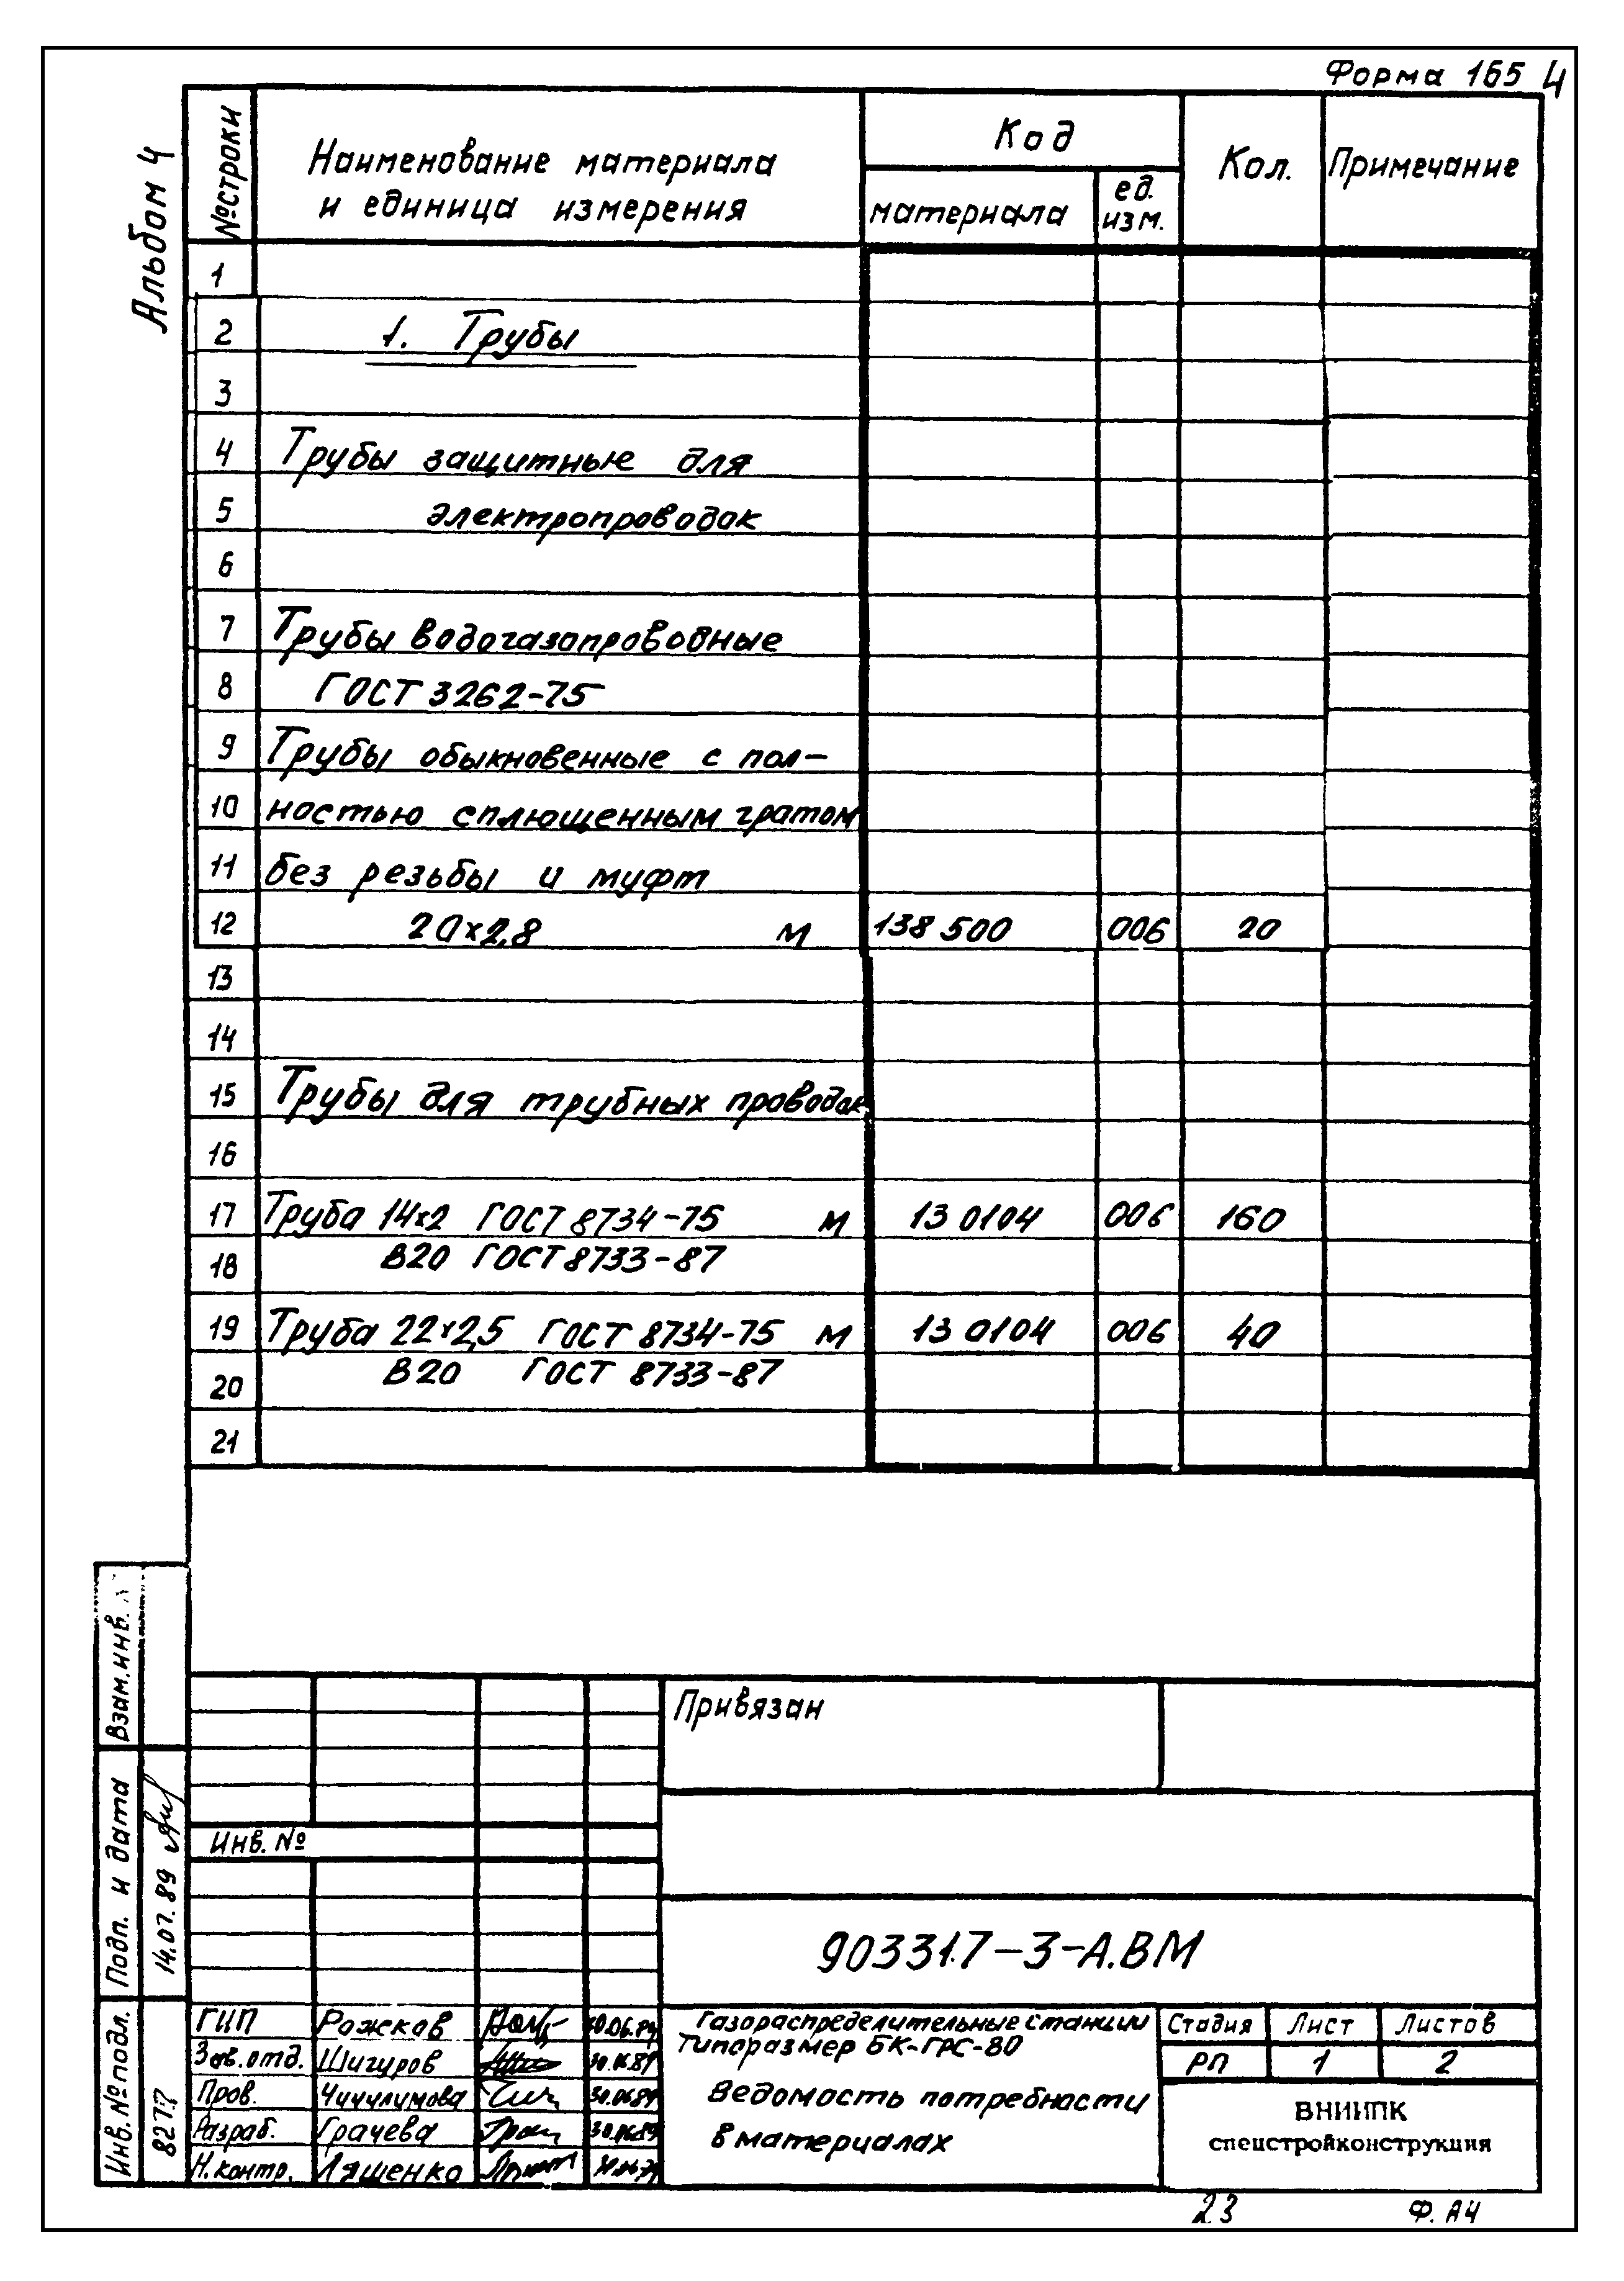 Форма 165 4
Альбом 4
№ строки
Наименование материала
и единица измерения
Код
материала
ед.
изм.
Кол.
Примечание
1
2 1. Трубы
3
4 Трубы защитные для
5 электропроводок
6
7 Трубы водогазопроводные
8 ГОСТ 3262-75
9 Трубы обыкновенные с пол-
10 ностью сплющенным гратом
11 без резьбы и муфт
12 20х2,8 м 138 500 006 20
13
14
15 Трубы для трубных проводок
16
17 Труба 14х2 ГОСТ 8734-75 м 13 0104 006 160
18 В20 ГОСТ 8733-87
19 Труба 22х2,5 ГОСТ 8734-75 м 13 0104 006 40
20 В20 ГОСТ 8733-87
21
Взам.инв.
Подп. и дата
14.07.89
Инв.№подл.
Привязан
Инв. №
903317-3-А.ВМ
ГИП Рожков
Зав.отд. Шигуров
Пров.
Разраб. Грачева
Н.контр. Лященко
Газораспределительные станции
Типоразмер БК-ГРС-80
Ведомость потребности
в материалах
Стадия Лист Листов
РП 1 2
ВНИИПК
спецстройконструкция
23 Ф. А4